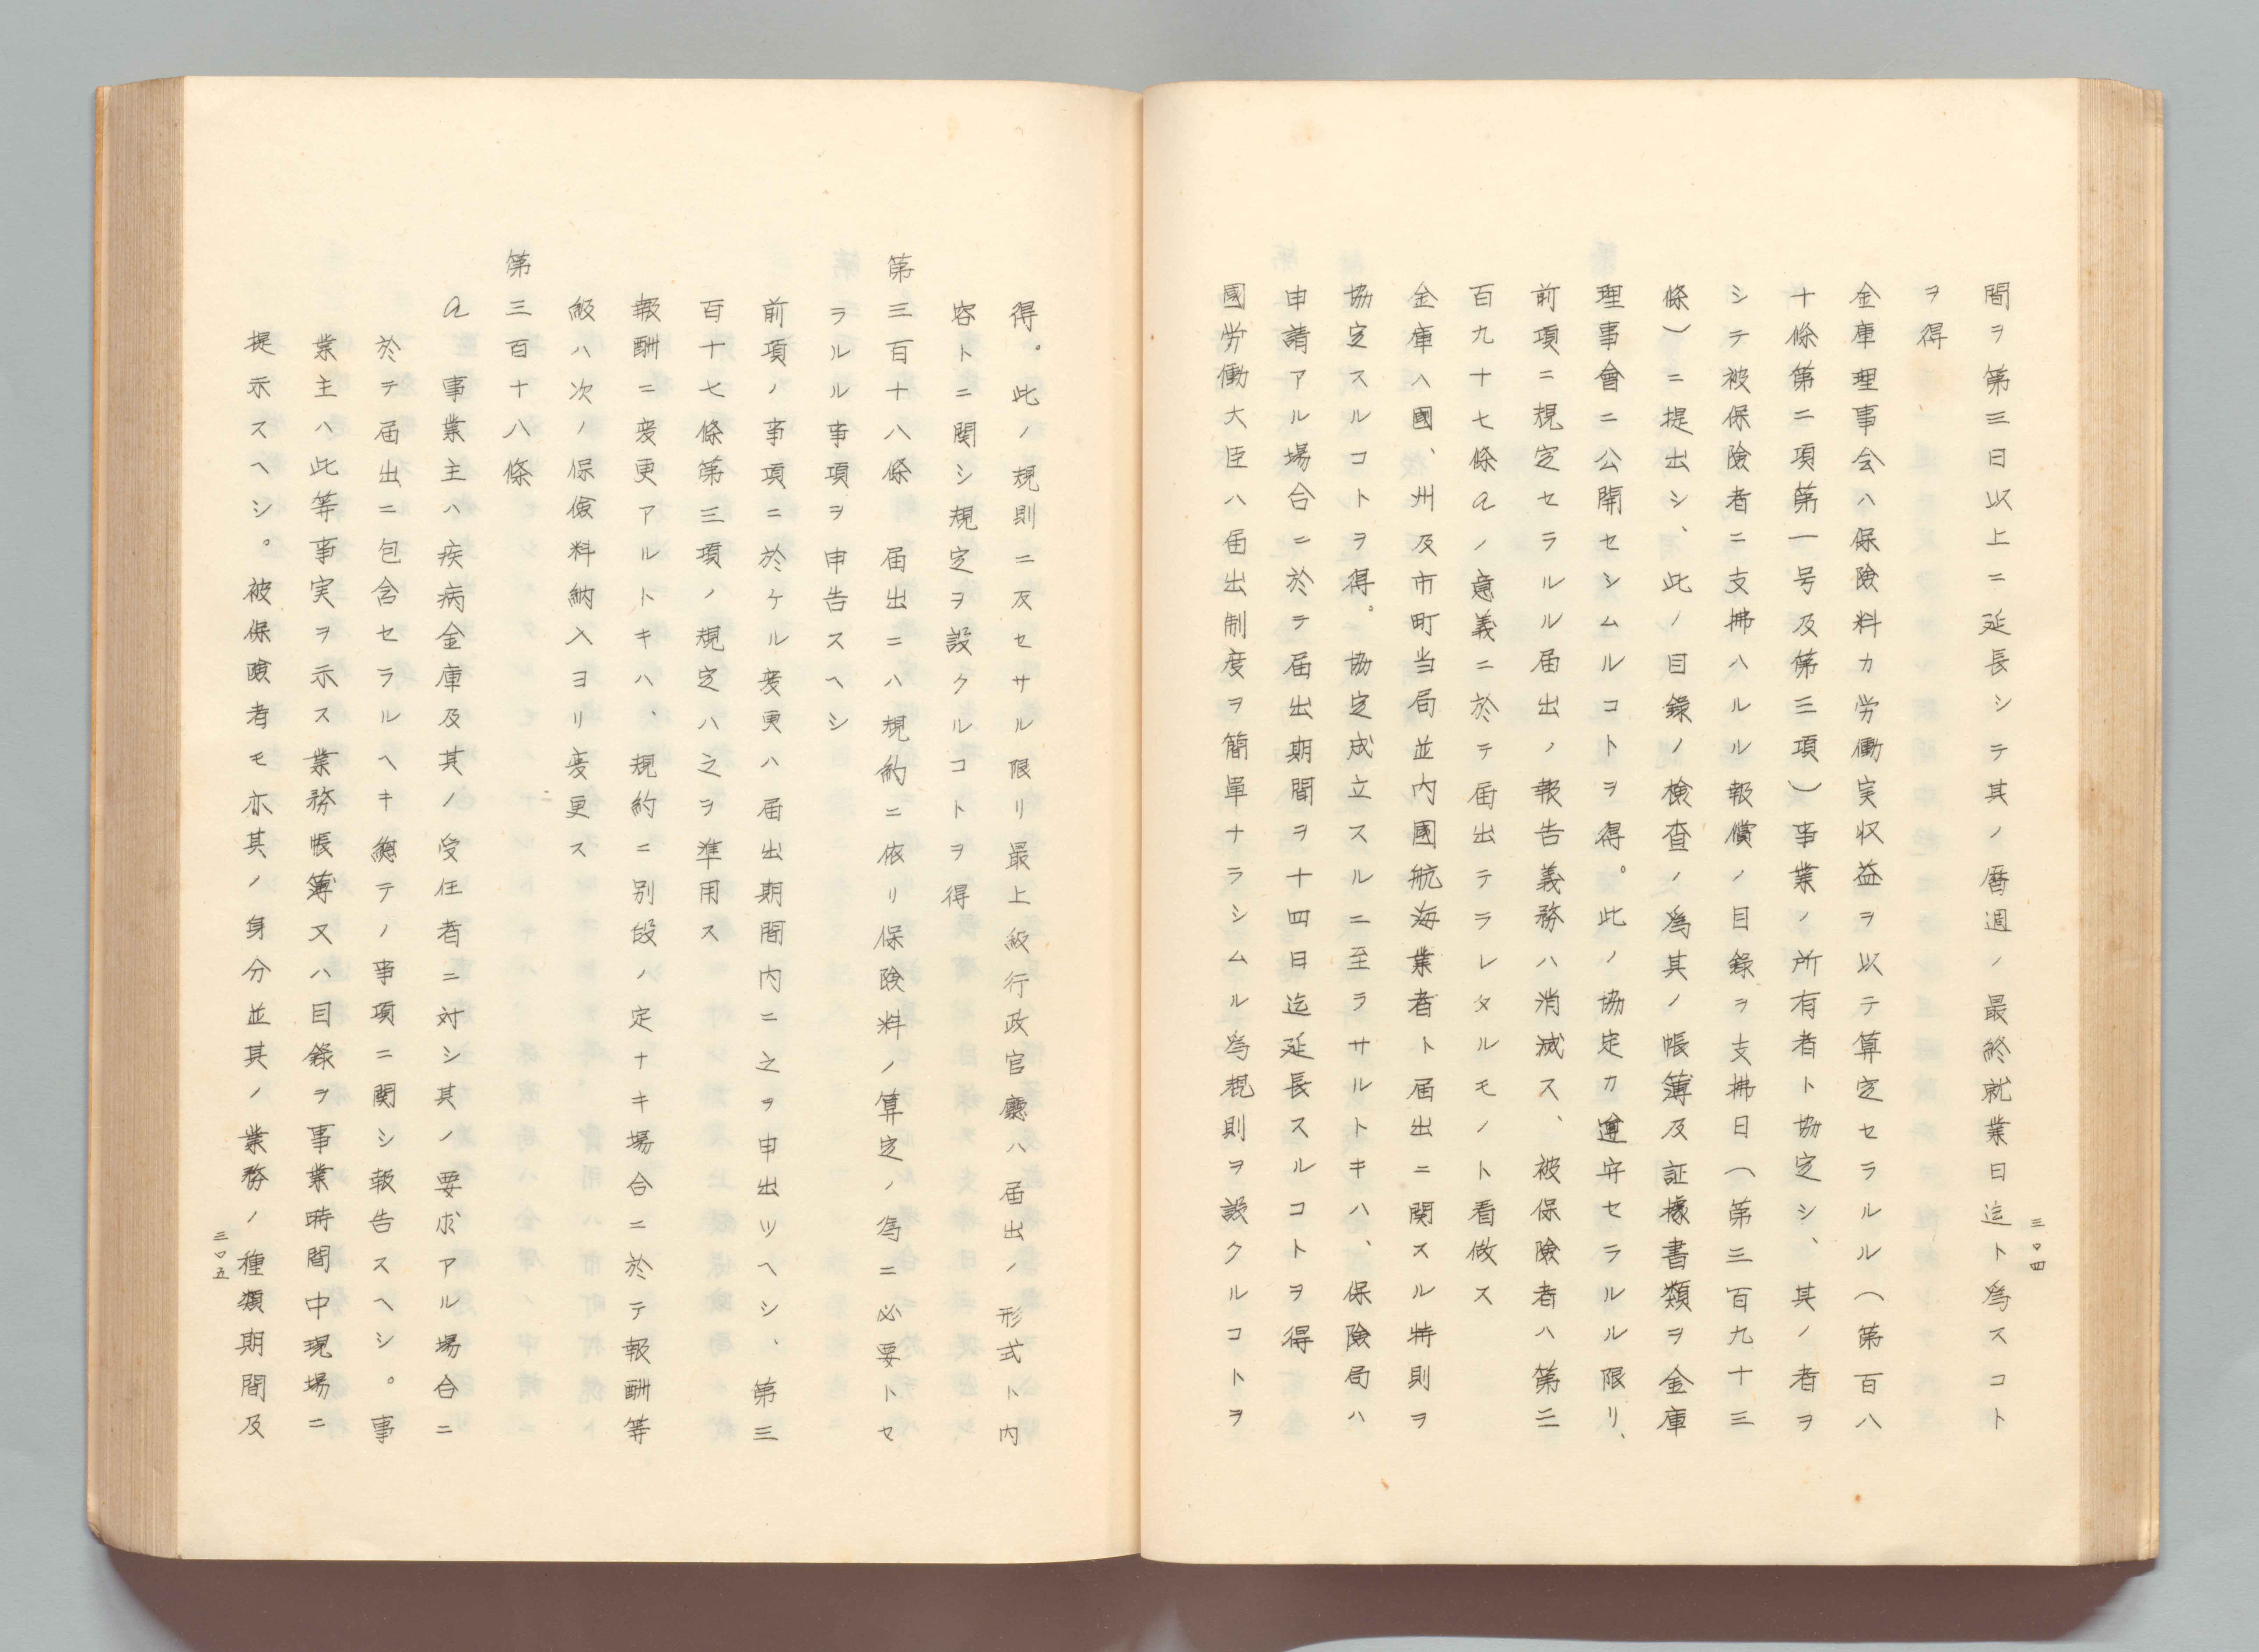 間ヲ第三日以上ニ延長シテ其ノ曆週ノ最終就業日迄ト爲スコト
ヲ得
金庫理事会ハ保險料カ労働実収益ヲ以テ算定セラルル(第百八
十條第二項第一号及第三項)事業ノ所有者ト協定シ、其ノ者ヲ
シテ被保險者ニ支拂ハルル報償ノ目錄ヲ支拂日(第三百九十三
條)ニ提出シ、此ノ目錄ノ檢查ノ爲其ノ帳簿及証據書類ヲ金庫
理事會ニ公開セシムルコトヲ得。此ノ協定カ遵守セラルル限リ、
前項ニ規定セラルル届出ノ報告義務ハ消滅ス、被保險者ハ第三
百九十七條aノ意義ニ於テ届出テラレタルモノト看做ス
金庫ハ國、州及市町当局並内國航海業者ト届出ニ関スル特則ヲ
協定スルコトヲ得。協定成立スルニ至ラサルトキハ、保險局ハ
申請アル場合ニ於テ届出期間ヲ十四日迄延長スルコトヲ得
國労働大臣ハ届出制度ヲ簡単ナラシムル爲規則ヲ設クルコトヲ
三〇四
得。此ノ規則ニ反セサル限リ最上級行政官廳ハ届出ノ形式ト内
容トニ関シ規定ヲ設クルコトヲ得
第三百十八條 届出ニハ規約ニ依リ保險料ノ算定ノ爲ニ必要トセ
ラルル事項ヲ申告スヘシ
前項ノ事項ニ於ケル変更ハ届出期間内ニ之ヲ申出ツヘシ、第三
百十七條第三項ノ規定ハ之ヲ準用ス
報酬ニ変更アルトキハ、規約ニ別段ノ定ナキ場合ニ於テ報酬等
級ハ次ノ保儉料納入ヨリ変更ス
第三百十八條
a 事業主ハ疾病金庫及其ノ受任者ニ対シ其ノ要求アル場合ニ
於テ届出ニ包含セラルヘキ総テノ事項ニ関シ報告スヘシ。事
業主ハ此等事実ヲ示ス業務帳簿又ハ目錄ヲ事業時間中現場ニ
提示スヘシ。被保險者モ亦其ノ身分並其ノ業務ノ種類期間及
三〇五